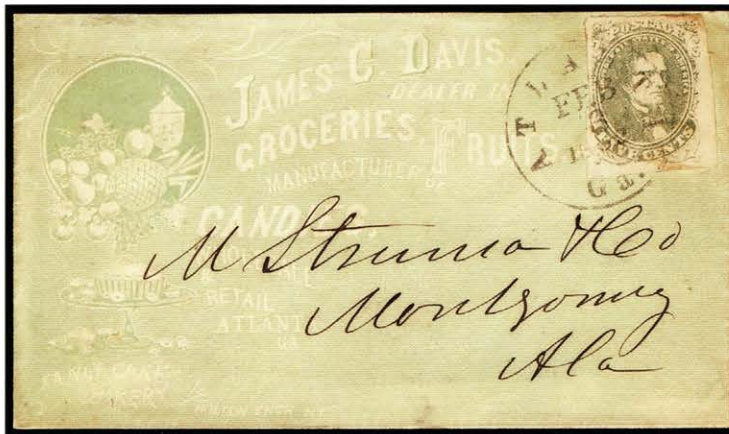 JAMES C. DAVIS.
DEALER IN
GROCERIES FRUITS
MANUFACTURER OF
CANDIES,
RETAIL
ATLANTA
GA
FANCY CAKE
BAKERY
ATLA
FEB
Ga.
M Struma & Co
Montgomery
Ala